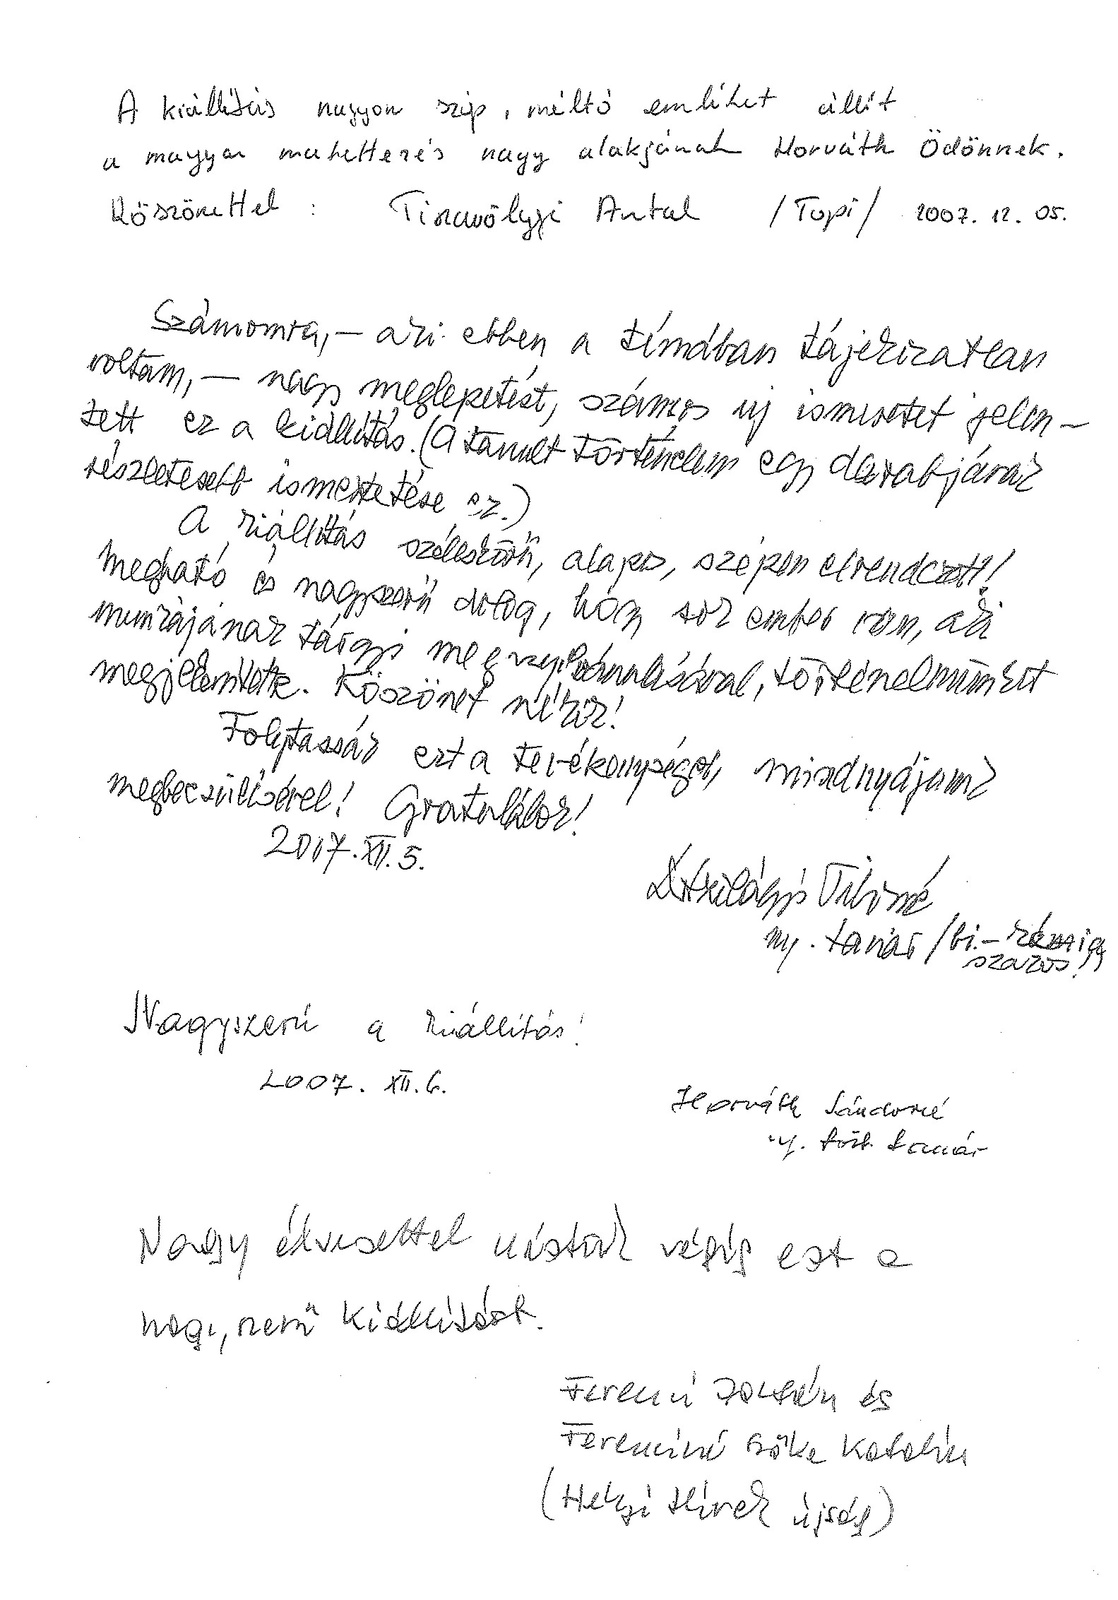 A kiállítás nagyon szép, méltó emléket állít
a magyar makettezés nagy alakjának Horváth Ödönnek.
Köszönettel : Tiszavölgyi Antal /Topi/ 2007. 12. 05.
Számomra, – aki ebben a témában tájékozatlan
voltam, – nagy meglepetést, számos új ismeretet jelen-
tett ez a kiállítás. (A tanult történelem egy darabjának
részletesebb ismertetése ez.)
A kiállítás széleskörű, alapos, szépen elrendezett!
Megható és nagyszerű dolog, hogy sok ember van, aki
munkájának tárgyi megörökítésével, történelmünket
megjelenítette. Köszönet nékik!
Folytassák ezt a tevékenységet, mindnyájunk
megbecsülésével! Gratulálok!
2007. XII. 5.
Szilágyi Tiborné
ny. tanár /bi.-kémia
szakos!/
Nagyszerű a kiállítás!
2007. XII. 6.
Horváth Sándorné
ny. tört. tanár
Nagy élvezettel néztük végig ezt a
nagyszerű kiállítást.
Ferenczi Zoltán és
Ferencziné Szőke Katalin
(Helyi Hírek újság)